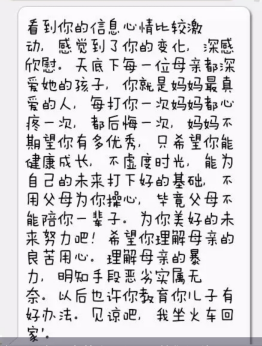 看到你的信息心情比较激
动，感觉到了你的变化，深感
欣慰。天底下每一位母亲都深
爱她的孩子，你就是妈妈最真
爱的人，每打你一次妈妈都心
疼一次，都后悔一次，妈妈不
期望你有多优秀，只希望你能
健康成长，不虚度时光，能为
自己的未来打下好的基础，不
用父母为你操心，毕竟父母不
能陪你一辈子。为你美好的未
来努力吧！希望你理解母亲的
良苦用心。理解母亲的暴
力，明知手段恶劣实属无
奈。以后也许你教育你儿子有
好办法。见谅吧，我坐火车回
家'。